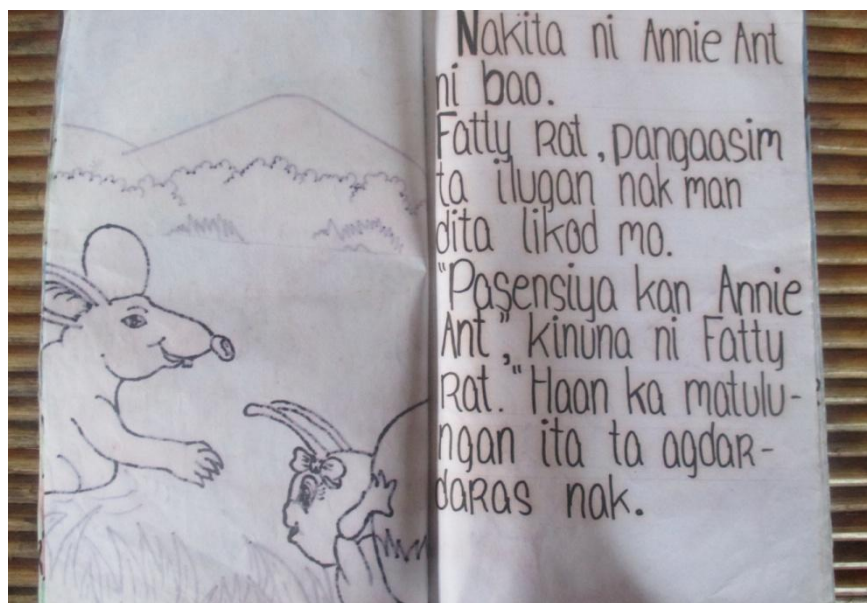 Nakita ni Annie Ant
ni bao.
Fatty Rat, pangaasim
ta ilugan nak man
dita likod mo.
"Pasensiya kan Annie
Ant", kinuna ni Fatty
Rat. "Haan ka matulu-
ngan ita ta agdar-
daras nak.